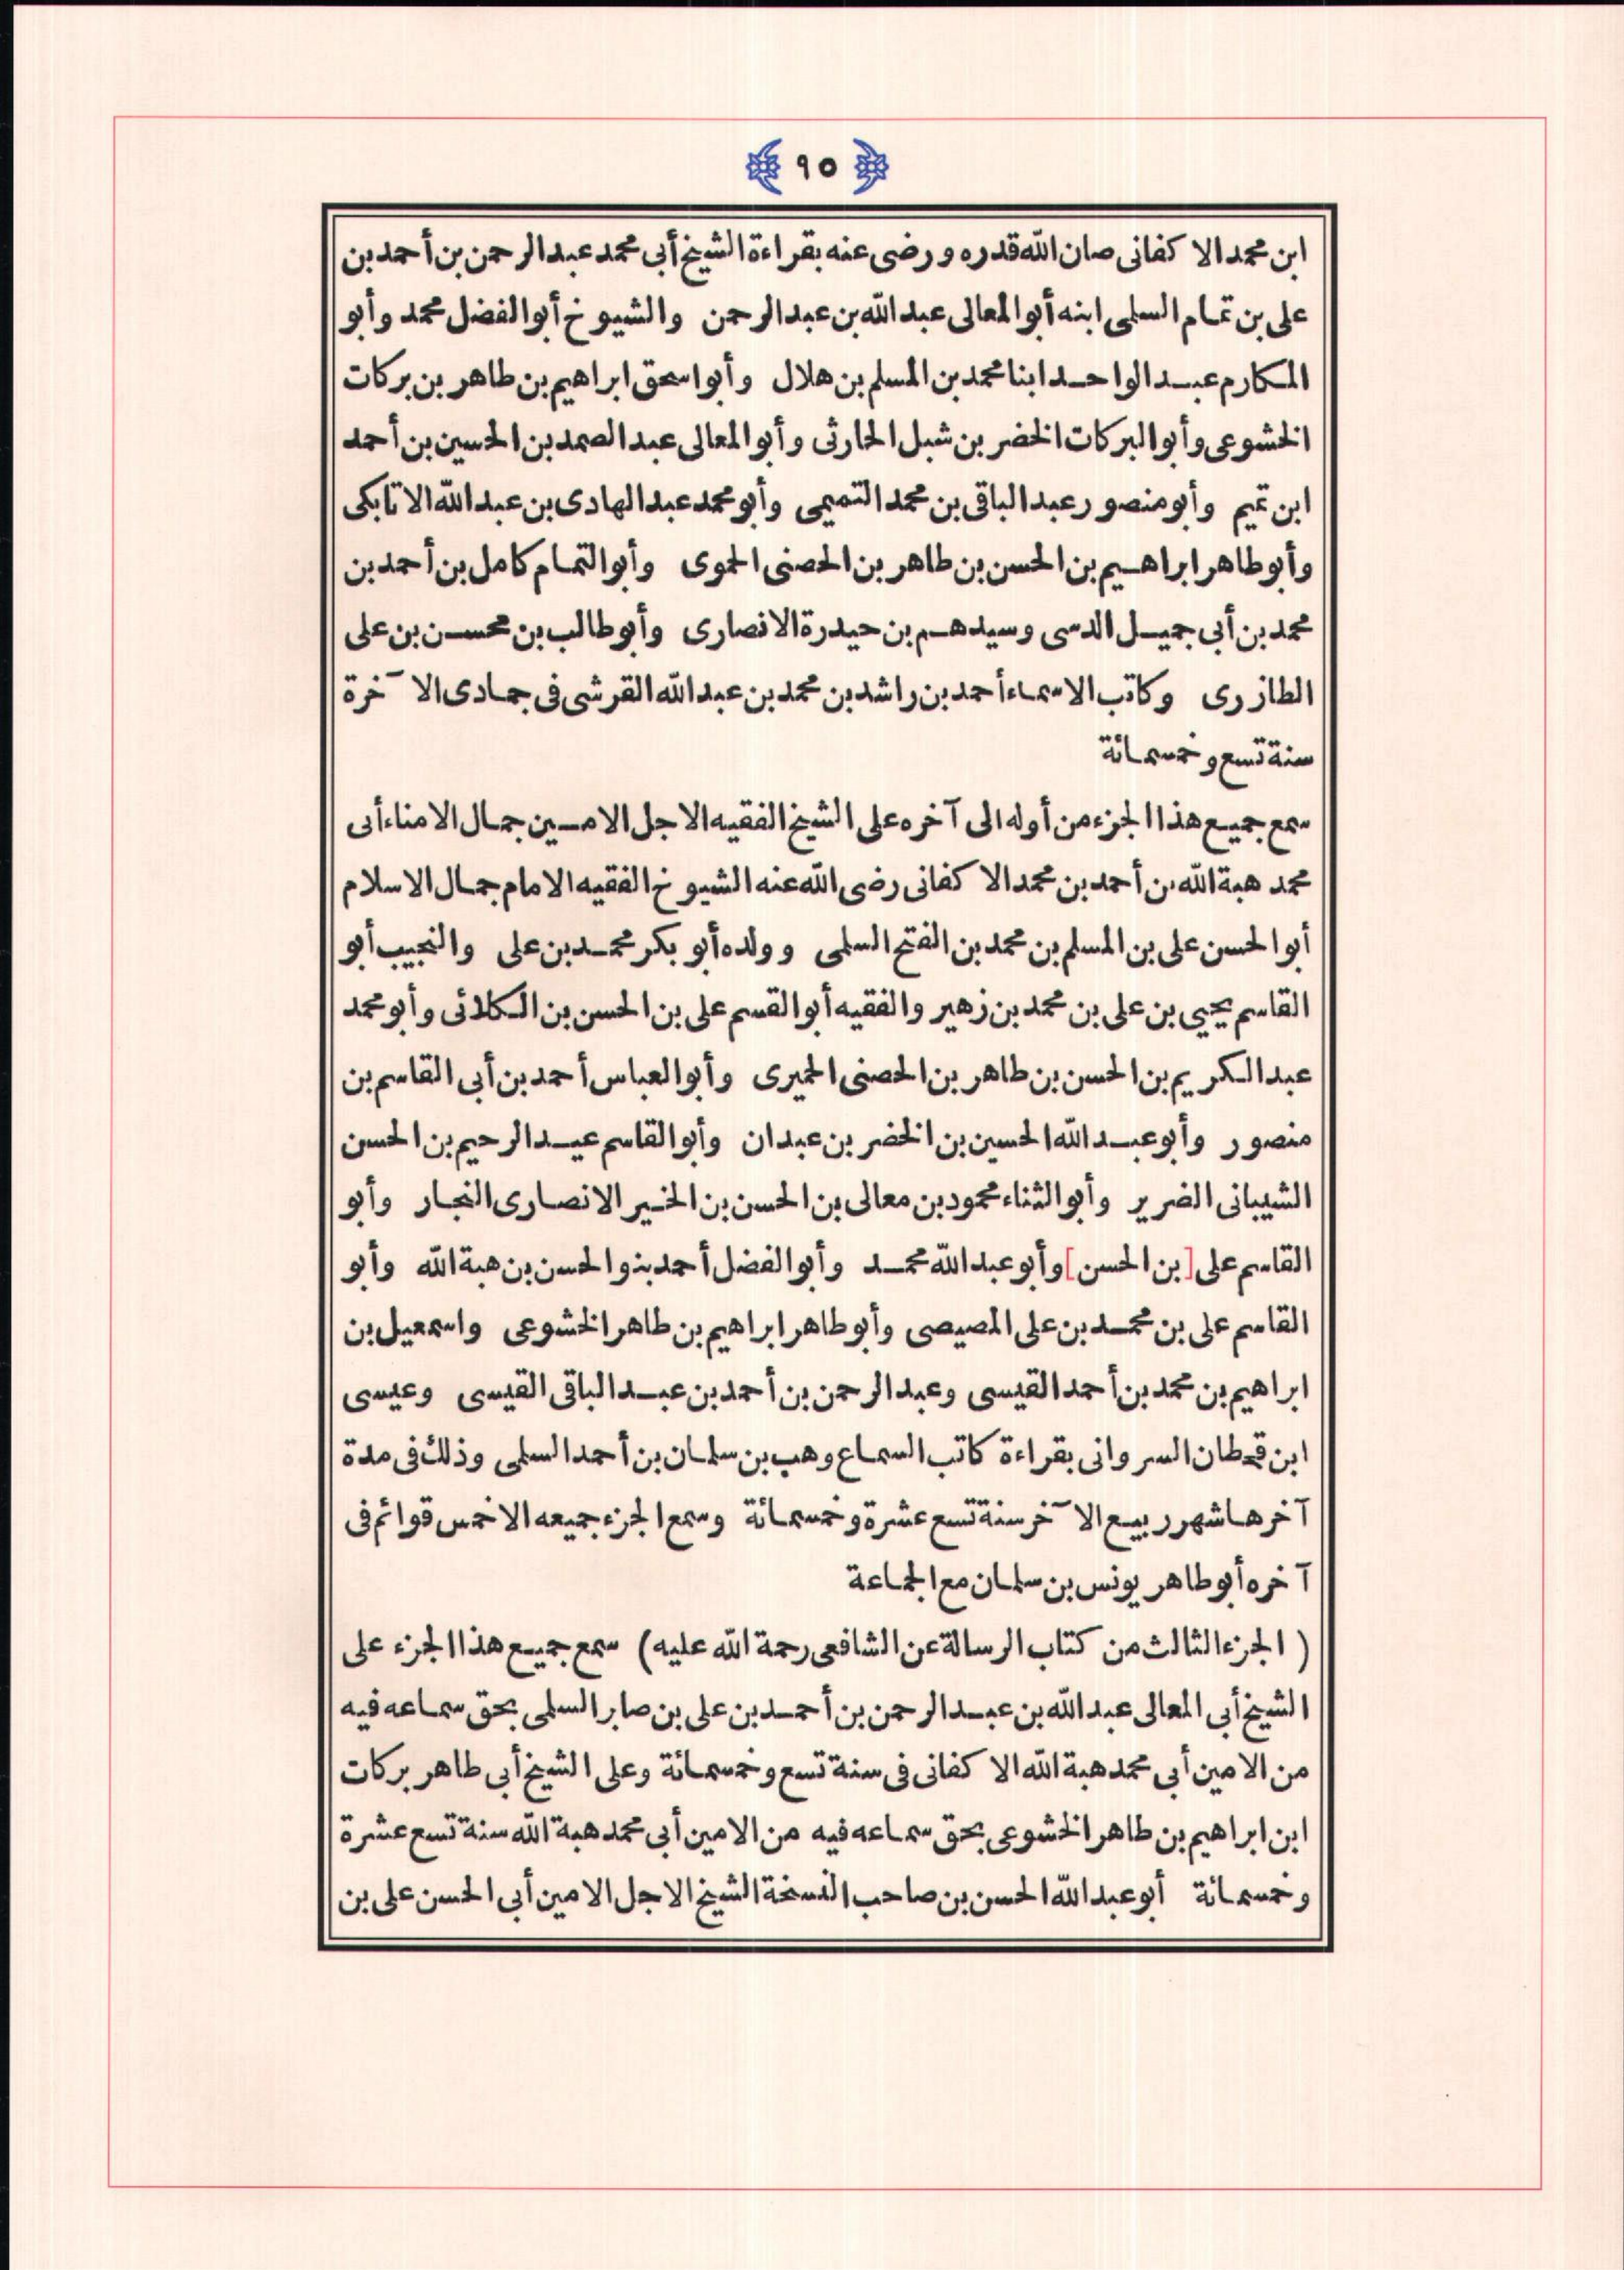 ٩٥
ابن محمد الاكفانى صان الله قدره ورضى عنه بقراءة الشيخ أبى محمد عبد الرحمن بن أحمد بن
على بن تمام السلمى ابنه أبو المعالى عبد الله بن عبد الرحمن والشيوخ أبو الفضل محمد وأبو
المكارم عبد الواحد ابنا محمد بن المسلم بن هلال وأبو اسحق ابراهيم بن طاهر بن بركات
الخشوعى وأبو البركات الخضر بن شبل الحارثى وأبو المعالى عبد الصمد بن الحسين بن أحمد
ابن تميم وأبو منصور عبد الباقى بن محمد التميمى وأبو محمد عبد الهادى بن عبد الله الاتابكى
وأبو طاهر ابراهيم بن الحسن بن طاهر بن الحصنى الحموى وأبو التمام كامل بن أحمد بن
محمد بن أبى جميل الدسى وسيدهم بن حيدرة الانصارى وأبو طالب بن محسن بن على
الطازرى وكاتب الاسماء أحمد بن راشد بن محمد بن عبد الله القرشى فى جمادى الآخرة
سنة تسع وخمسمائة
سمع جميع هذا الجزء من أوله الى آخره على الشيخ الفقيه الاجل الامين جمال الامناء أبى
محمد هبة الله بن أحمد بن محمد الاكفانى رضى الله عنه الشيوخ الفقيه الامام جمال الاسلام
أبو الحسن على بن المسلم بن محمد بن الفتح السلمى وولده أبو بكر محمد بن على والنجيب أبو
القاسم يحيى بن على بن محمد بن زهير والفقيه أبو القسم على بن الحسن بن الكلائى وأبو محمد
عبد الكريم بن الحسن بن طاهر بن الحصنى الحميرى وأبو العباس أحمد بن أبى القاسم بن
منصور وأبو عبد الله الحسين بن الخضر بن عبدان وأبو القاسم عبد الرحيم بن الحسن
الشيبانى الضرير وأبو الثناء محمود بن معالى بن الحسن بن الخير الانصارى النجار وأبو
القاسم على [بن الحسن] وأبو عبد الله محمد وأبو الفضل أحمد بنو الحسن بن هبة الله وأبو
القاسم على بن محمد بن على المصيصى وأبو طاهر ابراهيم بن طاهر الخشوعى واسمعيل بن
ابراهيم بن محمد بن أحمد القيسى وعبد الرحمن بن أحمد بن عبد الباقى القيسى وعيسى
ابن قحطان السروانى بقراءة كاتب السماع وهب بن سلمان بن أحمد السلمى وذلك فى مدة
آخرها شهر ربيع الآخر سنة تسع عشرة وخمسمائة وسمع الجزء جميعه الا خمس قوائم فى
آخره أبو طاهر يونس بن سلمان مع الجماعة
(الجزء الثالث من كتاب الرسالة عن الشافعى رحمة الله عليه) سمع جميع هذا الجزء على
الشيخ أبى المعالى عبد الله بن عبد الرحمن بن أحمد بن على بن صابر السلمى بحق سماعه فيه
من الامين أبى محمد هبة الله الاكفانى فى سنة تسع وخمسمائة وعلى الشيخ أبى طاهر بركات
ابن ابراهيم بن طاهر الخشوعى بحق سماعه فيه من الامين أبى محمد هبة الله سنة تسع عشرة
وخمسمائة أبو عبد الله الحسن بن صاحب النسخة الشيخ الاجل الامين أبى الحسن على بن